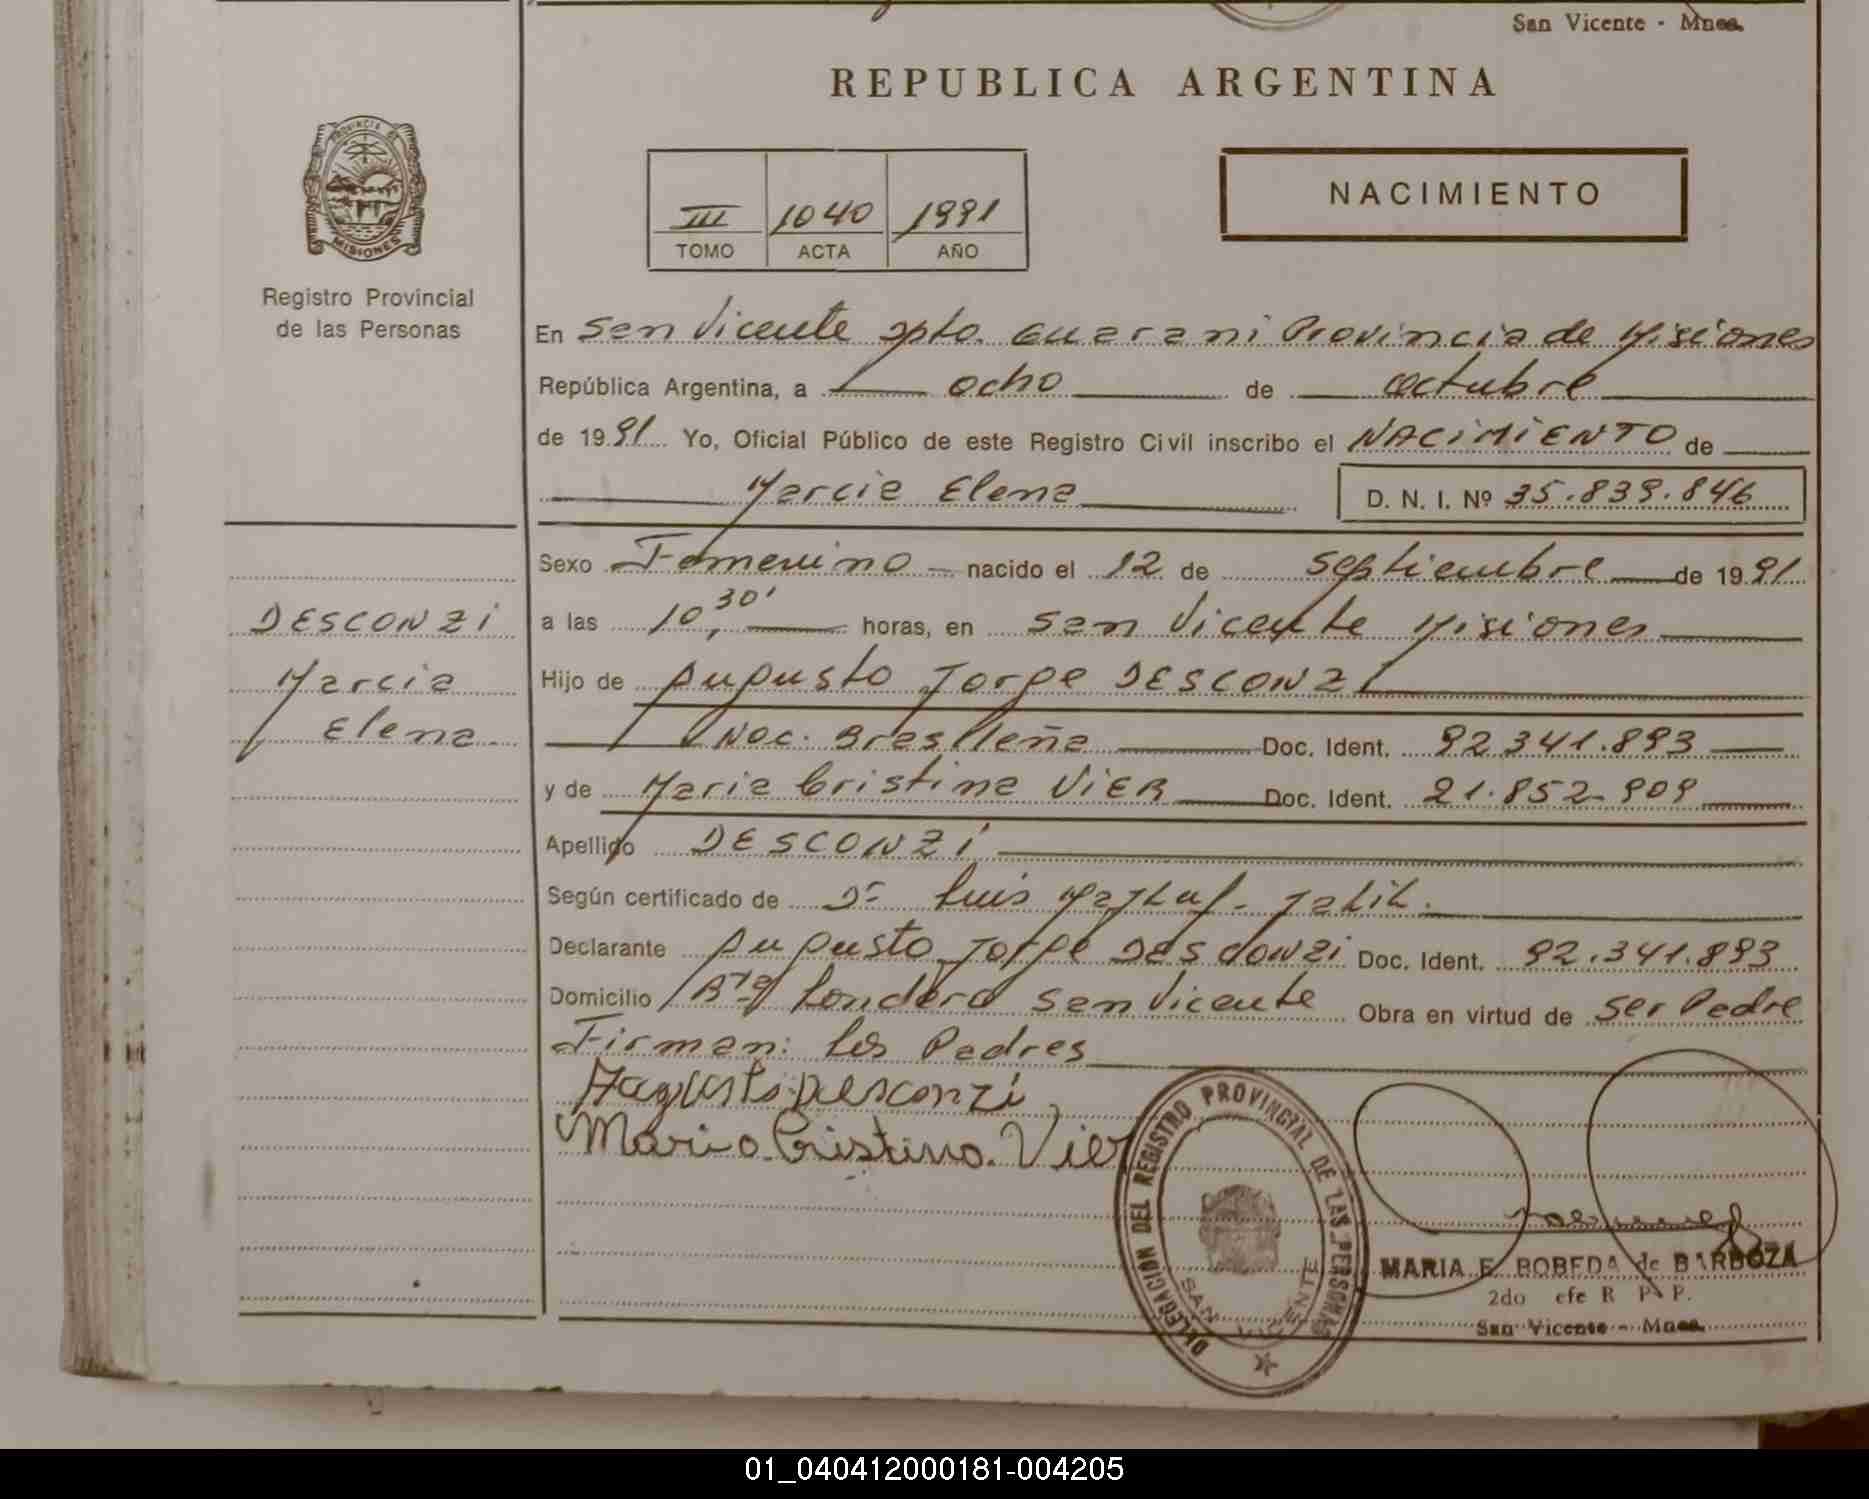 San Vicente - Mnes.
REPUBLICA ARGENTINA
PROVINCIA DE
MISIONES
Registro Provincial
de las Personas
III 1040 1991
TOMO ACTA AÑO
NACIMIENTO
En San Vicente Dpto. Guarani Provincia de Misiones
República Argentina, a ocho de octubre
de 1991 Yo, Oficial Público de este Registro Civil inscribo el NACIMIENTO de
Marcia Elena D. N. I. Nº 35.839.846
Sexo Femenino nacido el 12 de Septiembre de 1991
a las 10,30' horas, en San Vicente Misiones
Hijo de Augusto Jorge DESCONZI
Nac. Brasileña Doc. Ident. 92.341.893
y de Maria Cristina VIER Doc. Ident. 21.852.909
Apellido DESCONZI
Según certificado de Dr Luis
Declarante Augusto Jorge DESCONZI Doc. Ident. 92.341.893
Domicilio Bº Londero San Vicente Obra en virtud de ser Padre
Firman: Los Padres
Augusto Desconzi
Maria Cristina Vier
DESCONZI
Marcia
Elena
DELEGACION DEL REGISTRO PROVINCIAL DE LAS PERSONAS
SAN VICENTE
MARIA E. BOBEDA de BARBOZA
2do efe R P P.
San Vicente - Mnes.
01_040412000181-004205